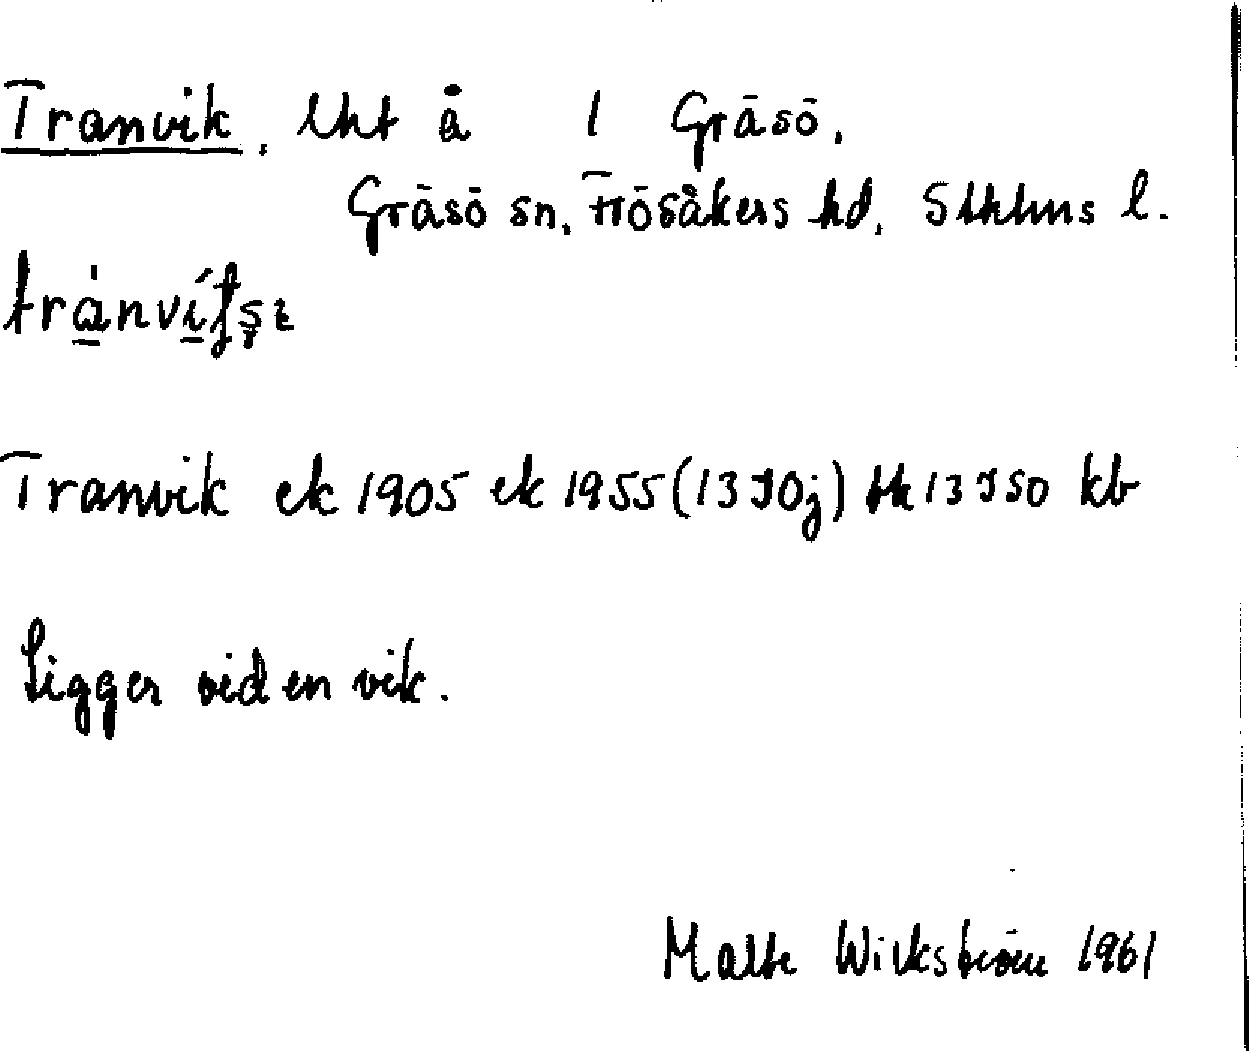 Tranvik, lht å 1 Gräsö,
Gräsö sn, Frösåkers hd, Sthlms l.
Tranvik ek 1905 ek 1955 (13 I 0j) tk 13 I SO kb
Ligger vid en vik.
Malte Wikström 1961